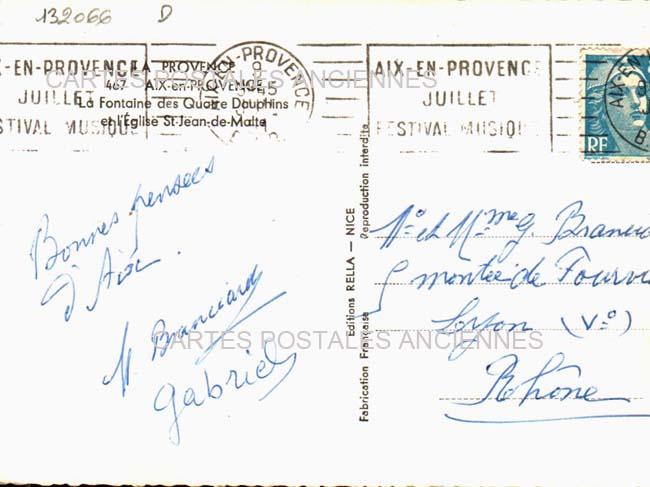 132066 D
X-EN-PROVENCE
JUILLET
FESTIVAL MUSIQUE
LA PROVENCE
467 AIX-en-PROVENCE
La Fontaine des Quatre Dauphins
et l'Église St-Jean-de-Malte
-PROVENCE
AIX-EN-PROVENCE
JUILLET
FESTIVAL MUSIQUE
AIX-EN-
RF
CARTES POSTALES ANCIENNES
Bonnes pensées
d'Aix.
M Branciard
Gabriel
Fabrication Française
Editions RELLA — NICE
Reproduction interdite
Mr et Mme G. Branciar
5 montée de Fourvi
Lyon (Vo)
Rhône
CARTES POSTALES ANCIENNES